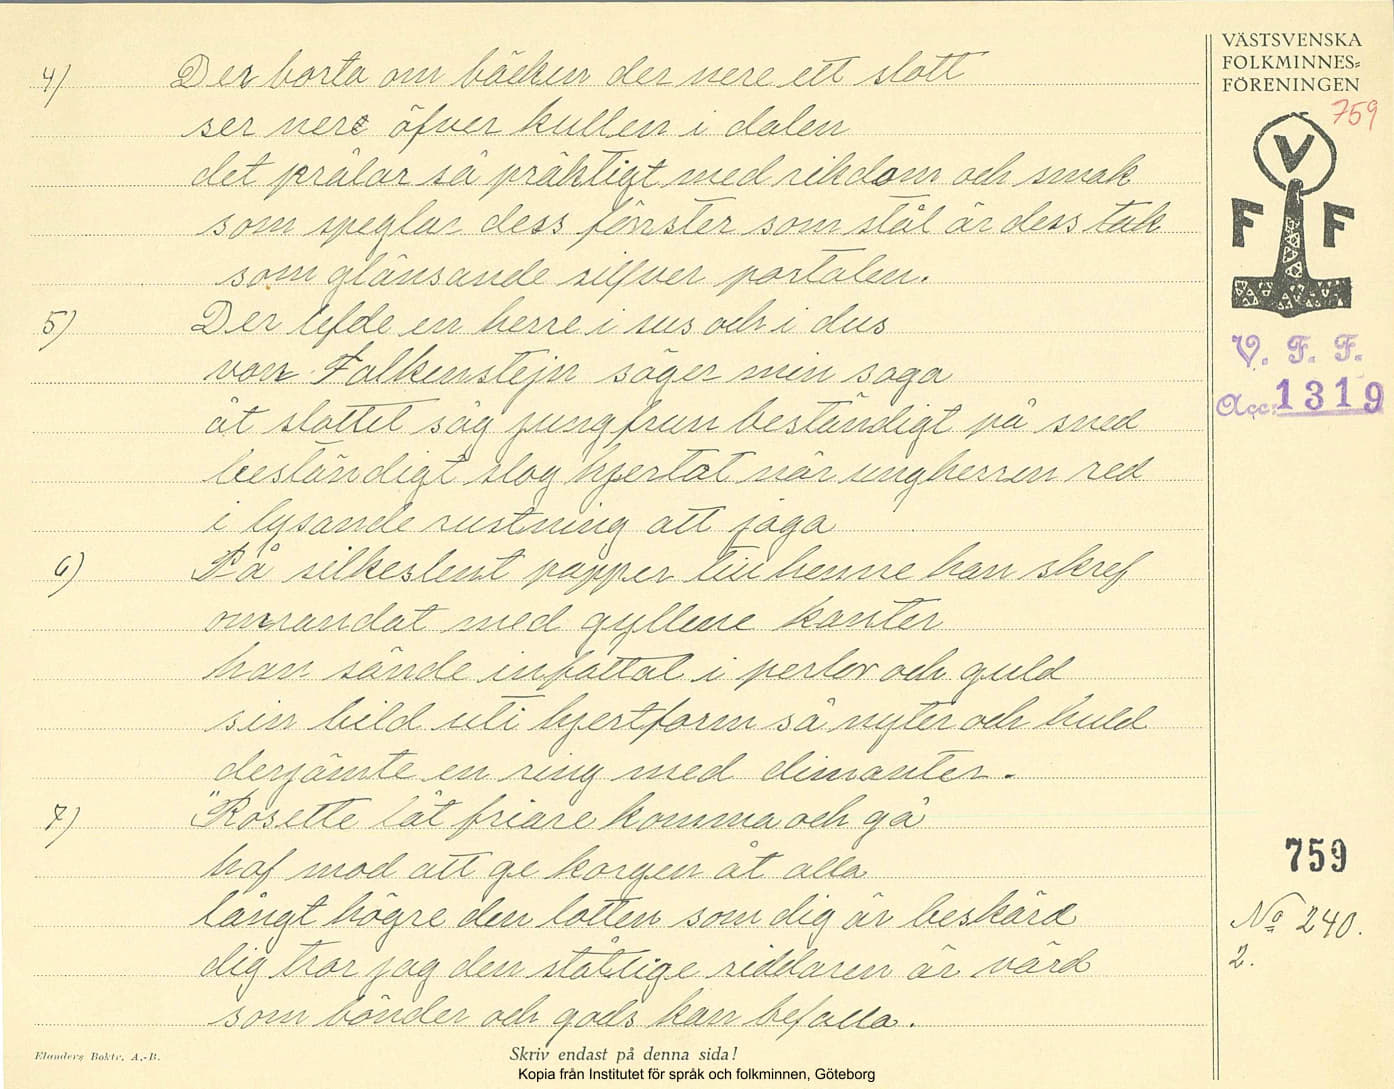 VÄSTSVENSKA
FOLKMINNES=
FÖRENINGEN
759
V
F F
V. F. F.
Acc. 1319
4) Der borta om bäcken der nere ett slott
ser nere öfver kullen i dalen
det prålar så präktigt med rikdom och smak
som speglar dess fönster som stål är dess tak
som glänsande silfver portalen.
5) Der lefde en herre i sus och i dus
von Falkenstejn säger min saga
åt slottet såg jungfrun beständigt på sned
beständigt slog hjertat när ungherren red
i lysande rustning att jaga
6) På silkeslent papper till henne han skref
omrandat med gyllene kanter
han sände infattat i perlor och guld
sin bild uti hjertform så nyter och huld
derjämte en ring med dimanter.
7) "Rosette låt friare komma och gå
haf mod att ge korgen åt alla
långt högre den lotten som dig är beskärd
dig tror jag den ståtlige riddaren är värd
som bönder och gods kan befalla.
759
No 240.
2.
Elanders Boktr. A.-B.
Skriv endast på denna sida!
Kopia från Institutet för språk och folkminnen, Göteborg